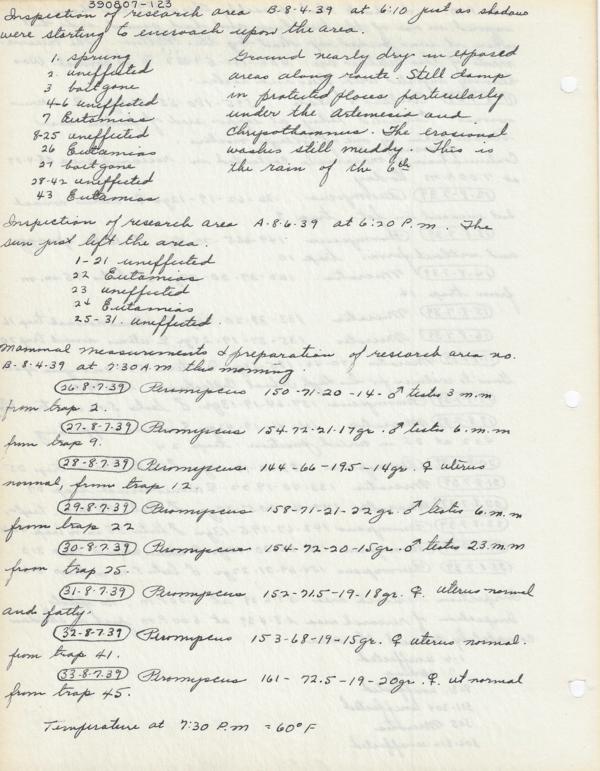 390807-123
Inspection of research area B-8-4-39 at 6:10 just as shadows
were starting to encroach upon the area.
1. sprung
2. uneffected
3 bait gone
4-6 uneffected
7 Eutamias
8-25 uneffected
26 Eutamias
27 bait gone
28-42 uneffected
43 Eutamias
Ground nearly dry in exposed
areas along route. Still damp
in protected places particularly
under the Artemesia and
Chrysothamnus. The erosional
washes still muddy. This is
the rain of the 6th
Inspection of research area A-8-6-39 at 6:20 P.m. The
sun just left the area.
1-21 uneffected
22 Eutamias
23 uneffected
24 Eutamias
25-31. uneffected.
Mammal measurements & preparation of research area no.
B-8-4-39 at 7:30 A.M this morning.
26-8-7-39 Peromyscus 150-71-20-14. ♂ testis 3 m.m
from trap 2.
27-8-7-39 Peromyscus 154-72-21-17gr. ♂ testis 6. m.m
from trap 9.
28-8-7-39 Peromyscus 144-66-19.5-14gr. ♀ uterus
normal, from trap 12.
29-8-7-39 Peromyscus 158-71-21-22gr. ♂ testis 6. m.m
from trap 22
30-8-7-39 Peromyscus 154-72-20-15gr. ♂ testis 2.3 m.m
from trap 25.
31-8-7-39 Peromyscus 152-71.5-19-18gr. ♀. uterus normal
and fatty.
32-8-7-39 Peromyscus 153-68-19-15gr. ♀ uterus normal.
from trap 41.
33-8-7-39 Peromyscus 161-72.5-19-20gr. ♀. ut normal
from trap 45.
Temperature at 7:30 P.m = 60°F